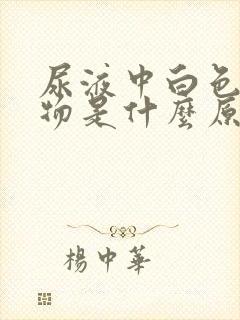 尿液中白色
物是什麼原
楊中華